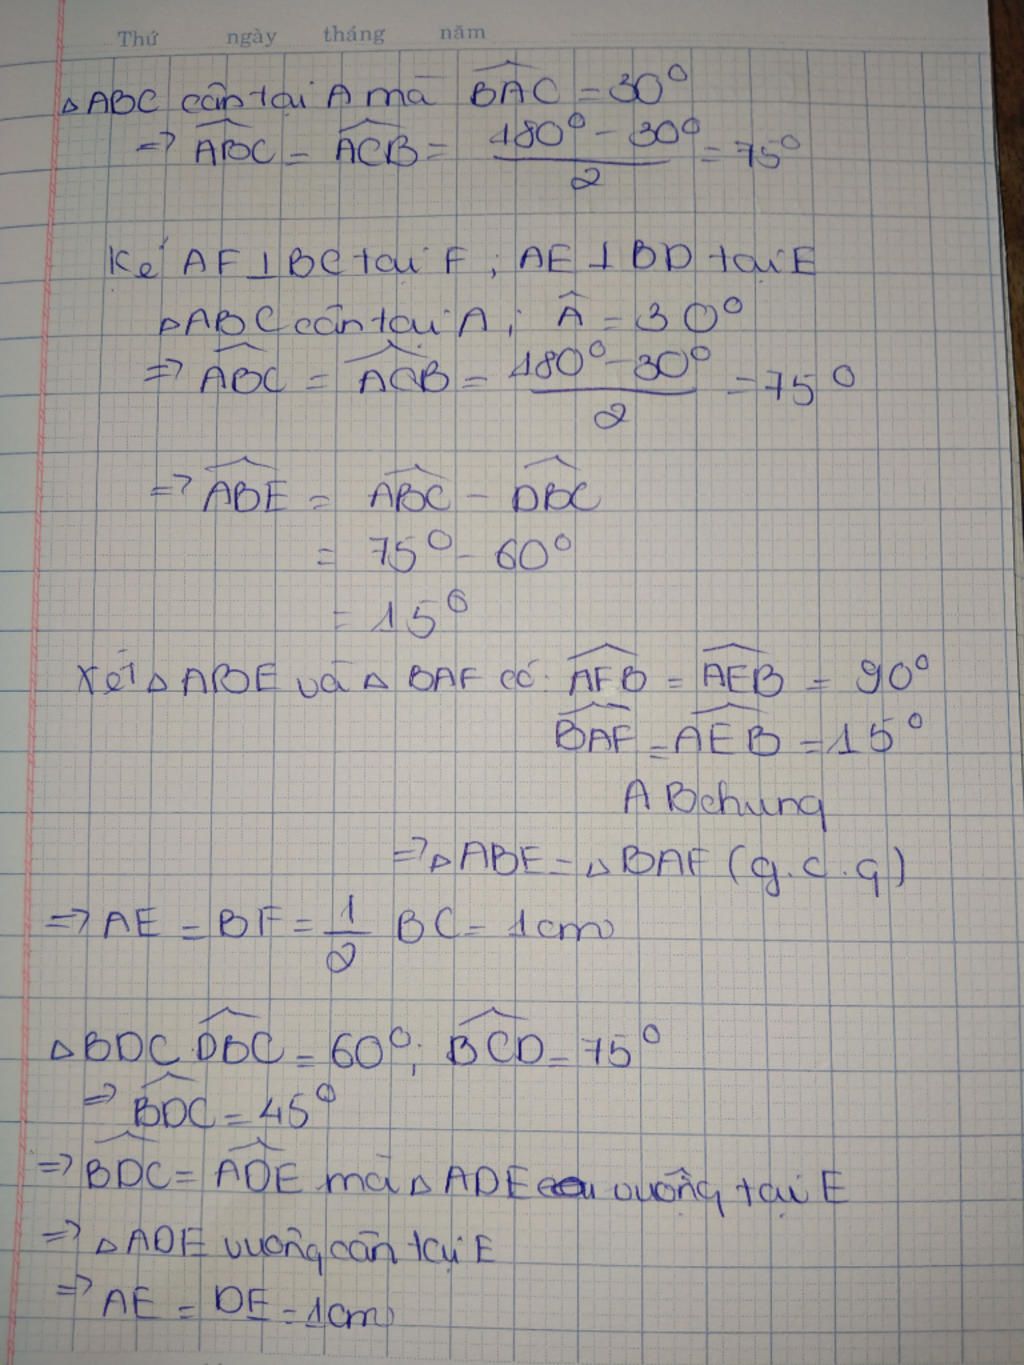 Thứ ngày tháng năm
△ABC cân tại A mà BAC = 30°
=> ABC = ACB = (180° - 30°)/2 = 75°
Kẻ AF⊥BC tại F; AE⊥BD tại E
△ABC cân tại A; Â = 30°
=> ABC = ACB = (180° - 30°)/2 = 75°
=> ABE = ABC - DBC
= 75° - 60°
= 15°
Xét △ABE và △BAF có: AFB = AEB = 90°
BAF = AEB = 15°
AB chung
=> △ABE = △BAF (g.c.g)
=> AE = BF = 1/2 BC = 1cm
△BDC DBC = 60°; BCD = 75°
=> BDC = 45°
=> BDC = ADE mà △ADE vuông tại E
=> △ADE vuông cân tại E
=> AE = DE = 1cm